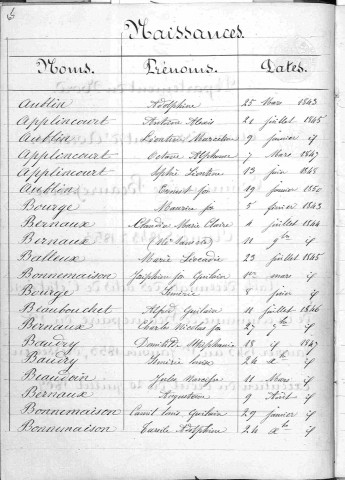 Naissances.
Noms. Prénoms. Dates.
Aublin Adolphine 25 Mars 1843
Applincourt Antoine Alexis 21 juillet 1845
Aublin Léocadie 9 janvier if
Applincourt Octave Alphonse 7 Mars 1847
Applincourt Sophie 13 juin 1848
Aublin Ernest fs 19 janvier 1850
Bourge Maurice fs 5 février 1843
Bernaux Claudia Marie Claire 4 juillet 1844
Bernaux 11 9bre if
Balleux Marie Léocadie 23 juillet 1845
Bonnemaison Joséphine fs Guilain 1er mars if
Bourge 8 juin if
Beaubouchet Alfred Guilain 11 juillet 1846
Bernaux Charles Nicolas fs 27 9bre if
Baudry Stéphanie 18 if 1847
Baudry 24 xbre if
Beaudoin Jules Narcisse 11 Mars if
Bernaux Augustine 9 Août if
Bonnemaison Camil Louis Guilain 29 janvier if
Bonnemaison Adolphine 24 xbre if